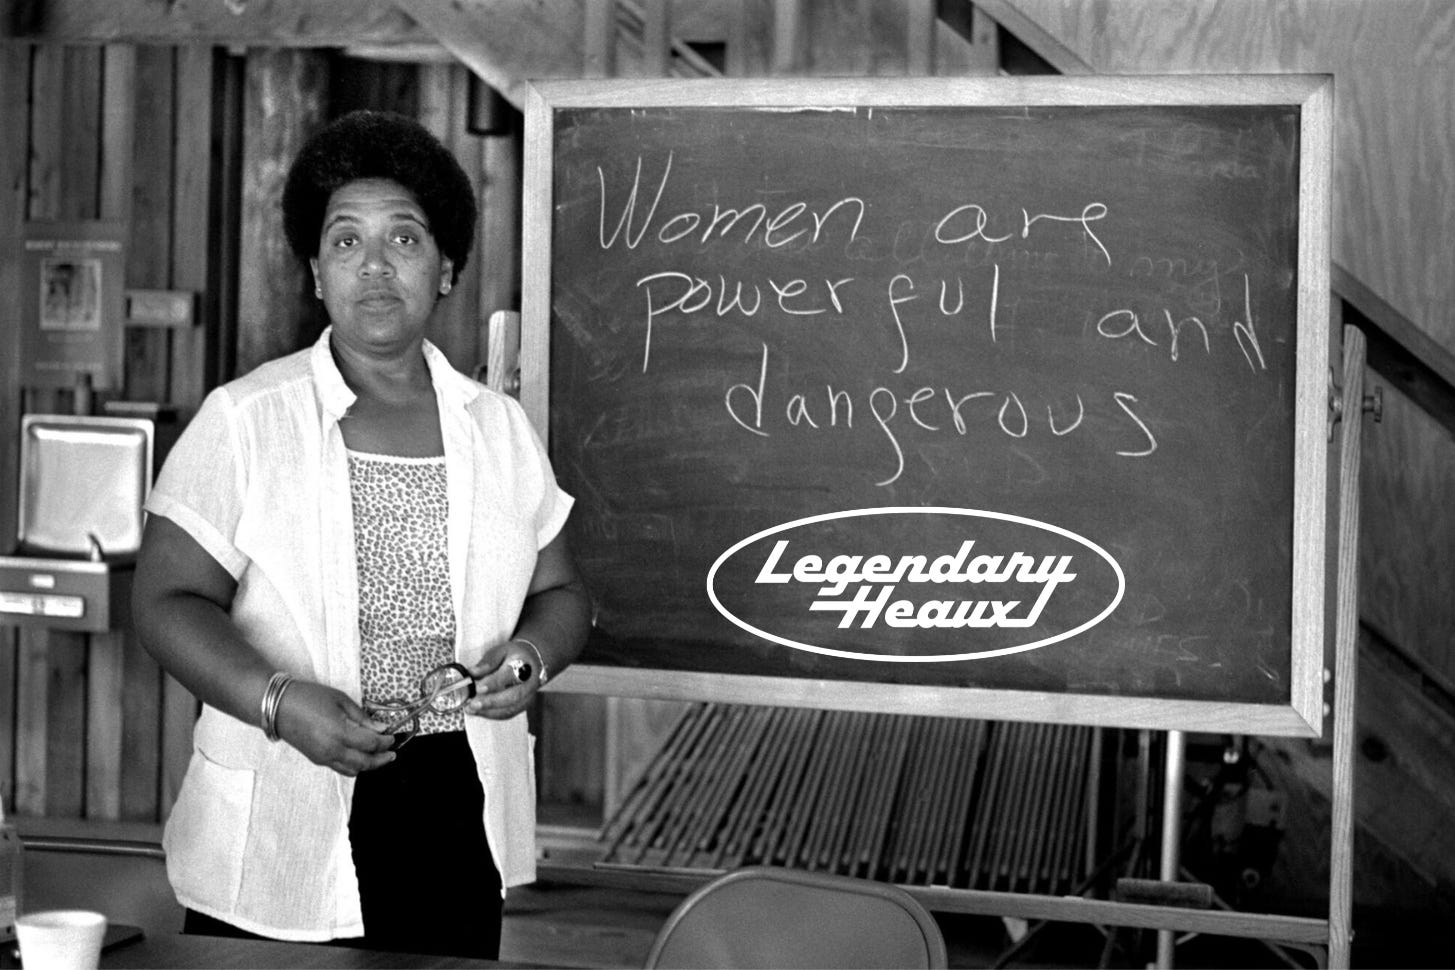 Women are
powerful and
dangerous
Legendary
Heaux